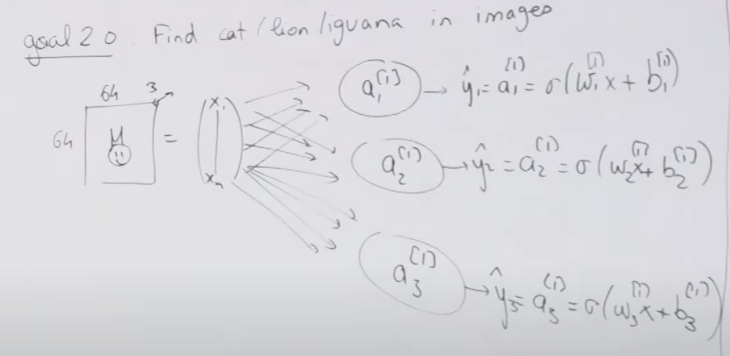 goal 2.0 Find cat/lion/iguana in images
64 3
64
= (x₁
xₙ)
a₁^[1] → ŷ₁ = a₁^[1] = σ(w₁^[1] x + b₁^[1])
a₂^[1] → ŷ₂ = a₂^[1] = σ(w₂^[1] x + b₂^[1])
a₃^[1] → ŷ₃ = a₃^[1] = σ(w₃^[1] x + b₃^[1])